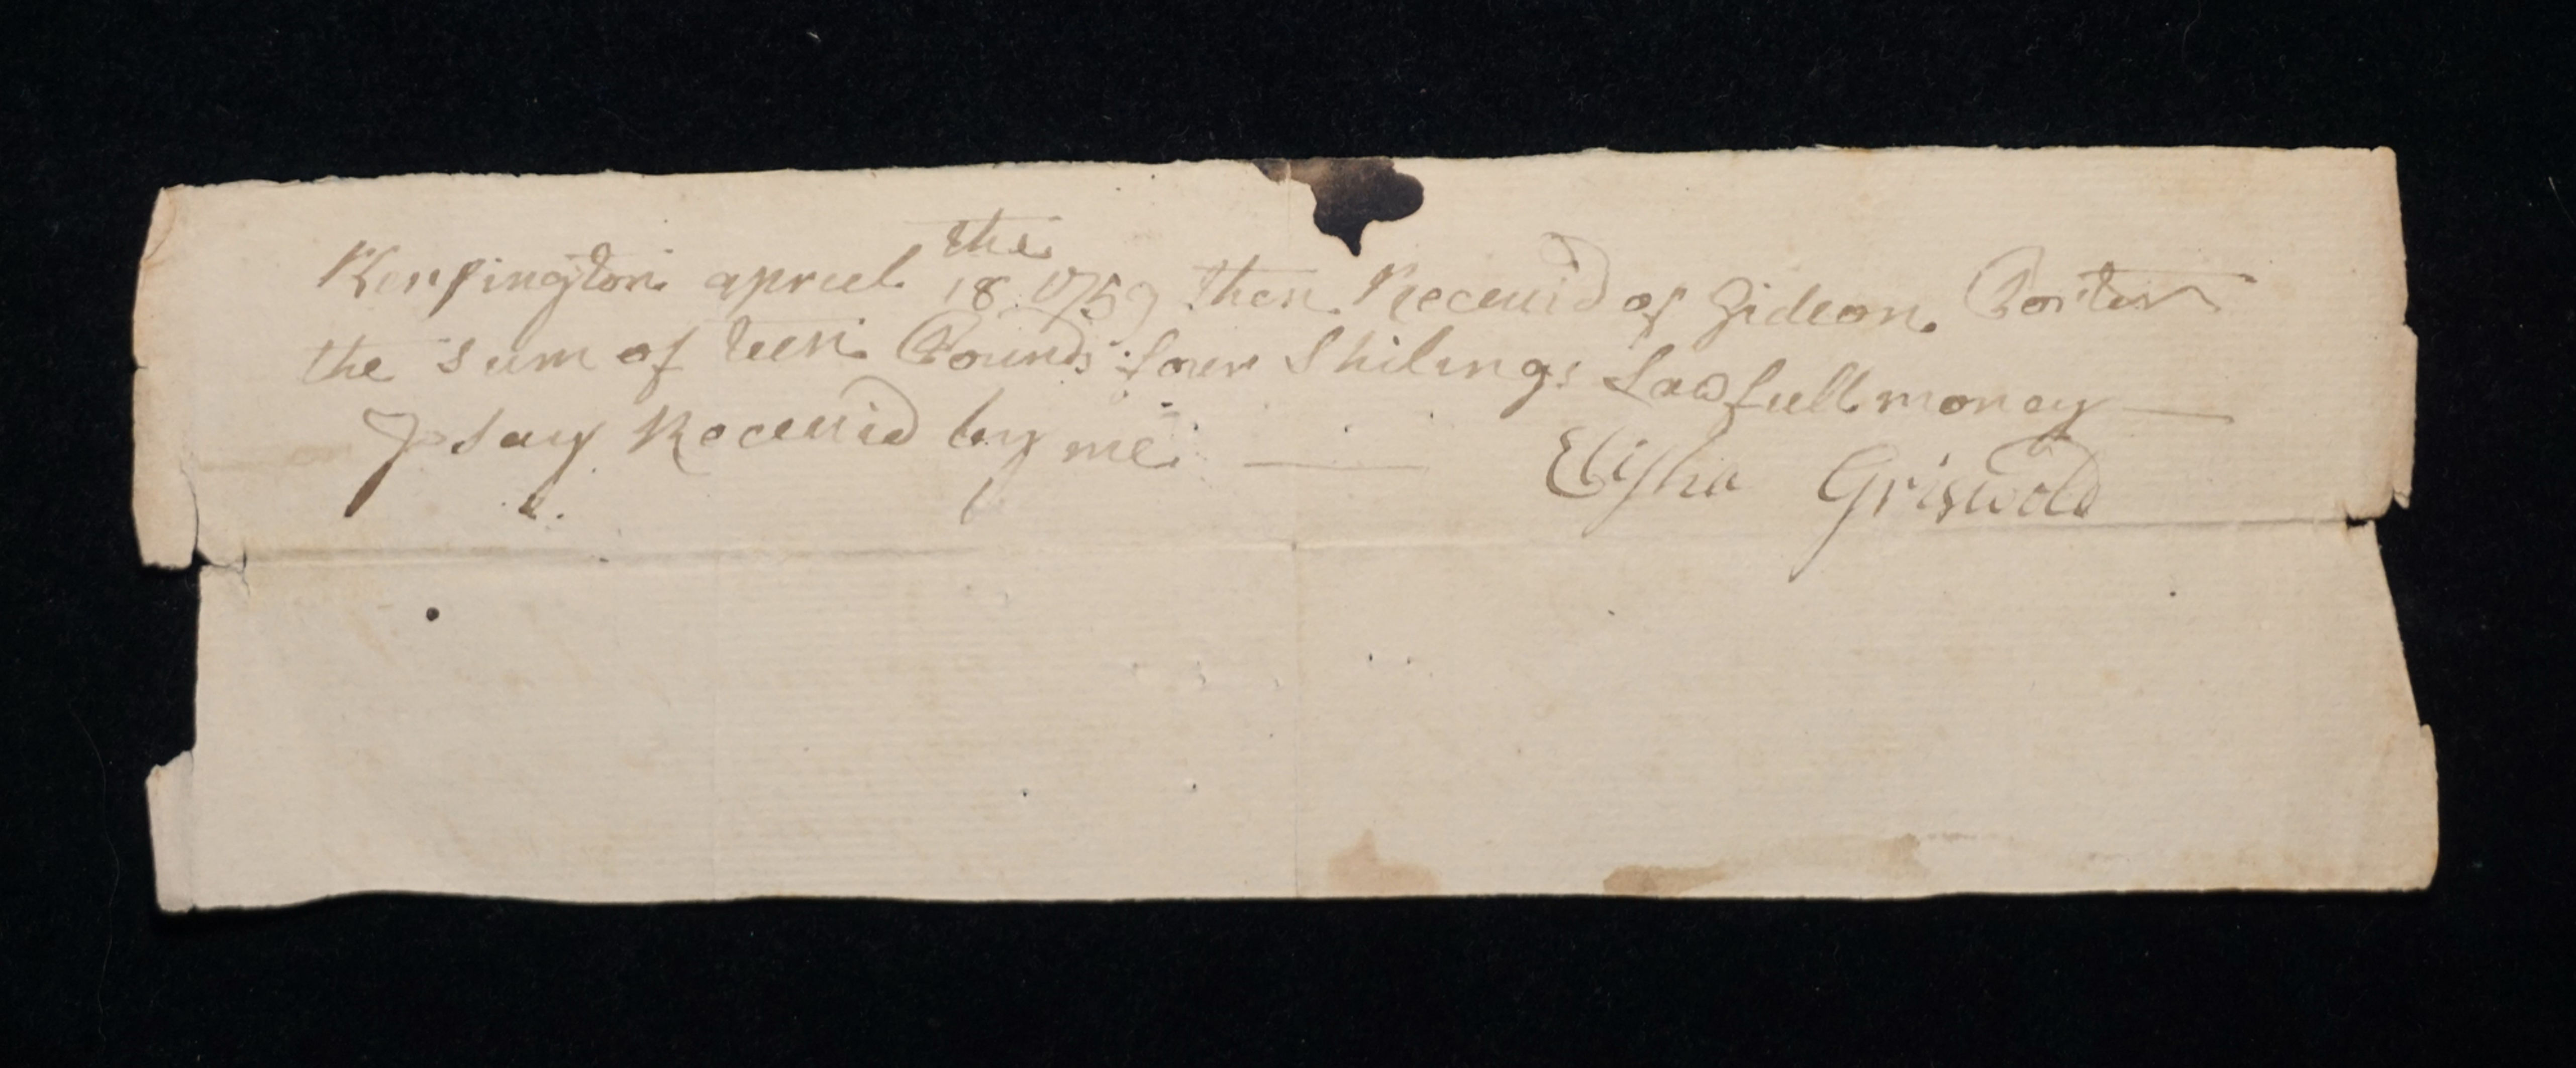 Kensington apreel the 18 1759 then Receuid of Gideon Porter
the sum of teen Pounds four Shilings Lawfull money
I say Receuid by me Elisha Griswold